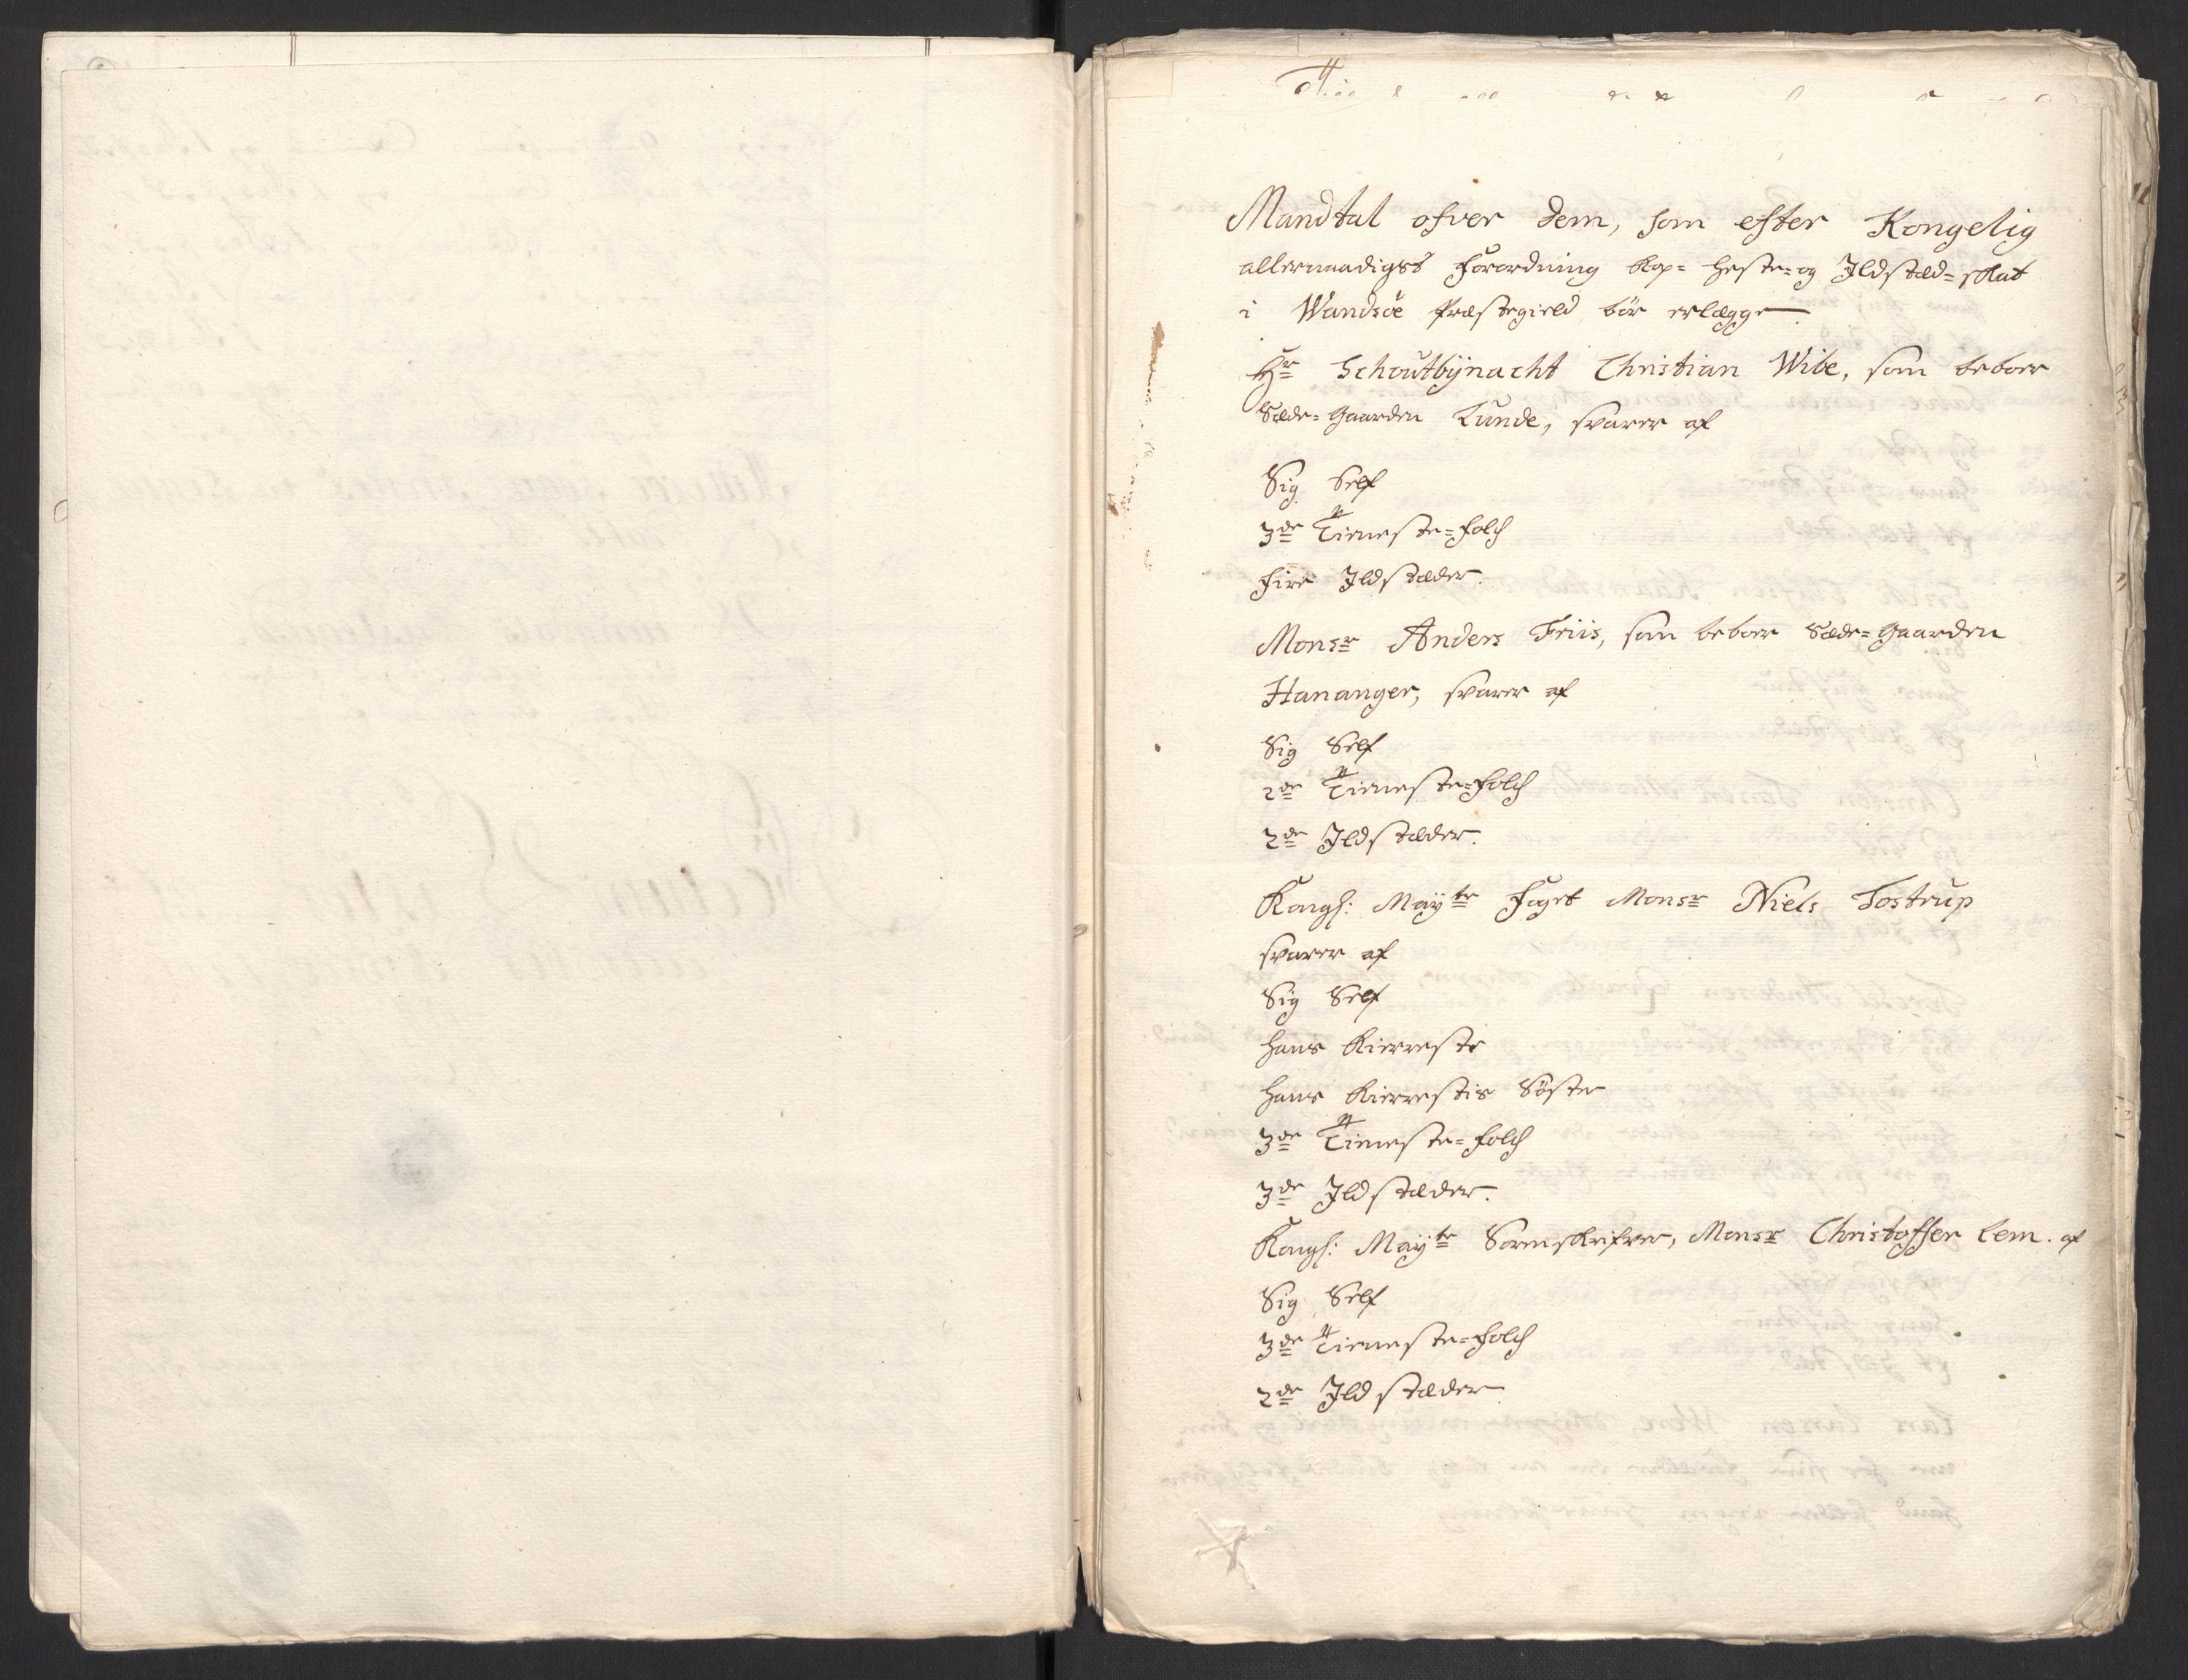 Mandtal ofver dem, som efter Kongelig
allernaadigst Forordning Kop= Heste=og Ildstæd=skat
i Wandsöe Præstegield bör erlægge
Hr Schoutbÿnacht Christian Wibe, som beboer
Sæde=Gaarden Lunde, svarer af
Sig Self
3de Tieneste=folch
fire Ildstæder.
Monsr Anders Friis, som beboer Sæde=Gaarden
Hananger, svarer af
Sig Self
2de Tieneste=folch
2de Ildstæder.
Kongl: Maÿts Foget Monsr Niels Tostrup
svarer af
Sig Self
hans Kierreste
hans Kierrestis Söster
3de Tieneste=folch
3de Ildstæder.
Kongl: Maÿts Sorenskrifver, Monsr Christoffer Lem. af
Sig Self
3de Tieneste=folch
2de Ildstæder